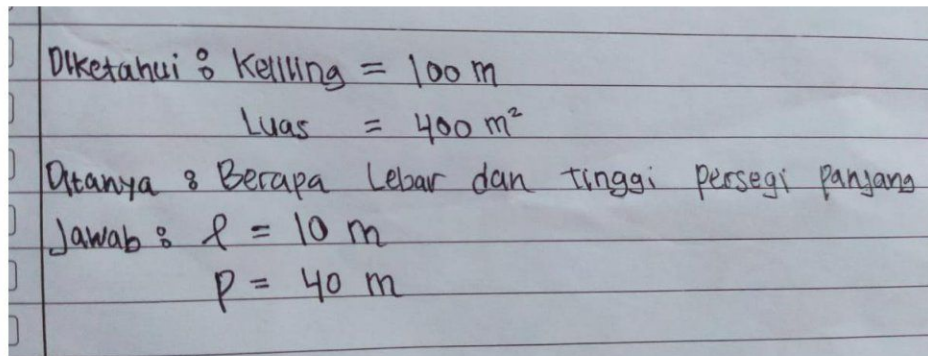 Diketahui : Keliling = 100 m
Luas = 400 m²
Ditanya : Berapa Lebar dan tinggi persegi panjang
Jawab : l = 10 m
p = 40 m